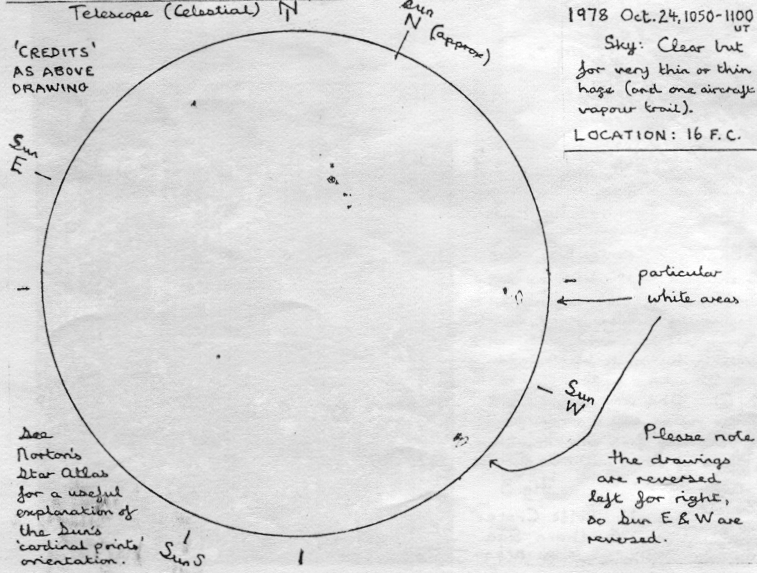 Telescope (Celestial) N
Sun
N (approx)
1978 Oct. 24, 1050-1100
UT
Sky: Clear but
for very thin or thin
haze (and one aircraft
vapour trail).
LOCATION: 16 F.C.
'CREDITS'
AS ABOVE
DRAWING
Sun
E
particular
white areas
Sun
W
See
Norton's
Star Atlas
for a useful
explanation of
the Sun's
'cardinal points'
orientation.
Sun S
Please note
the drawings
are reversed
left for right,
so Sun E & W are
reversed.